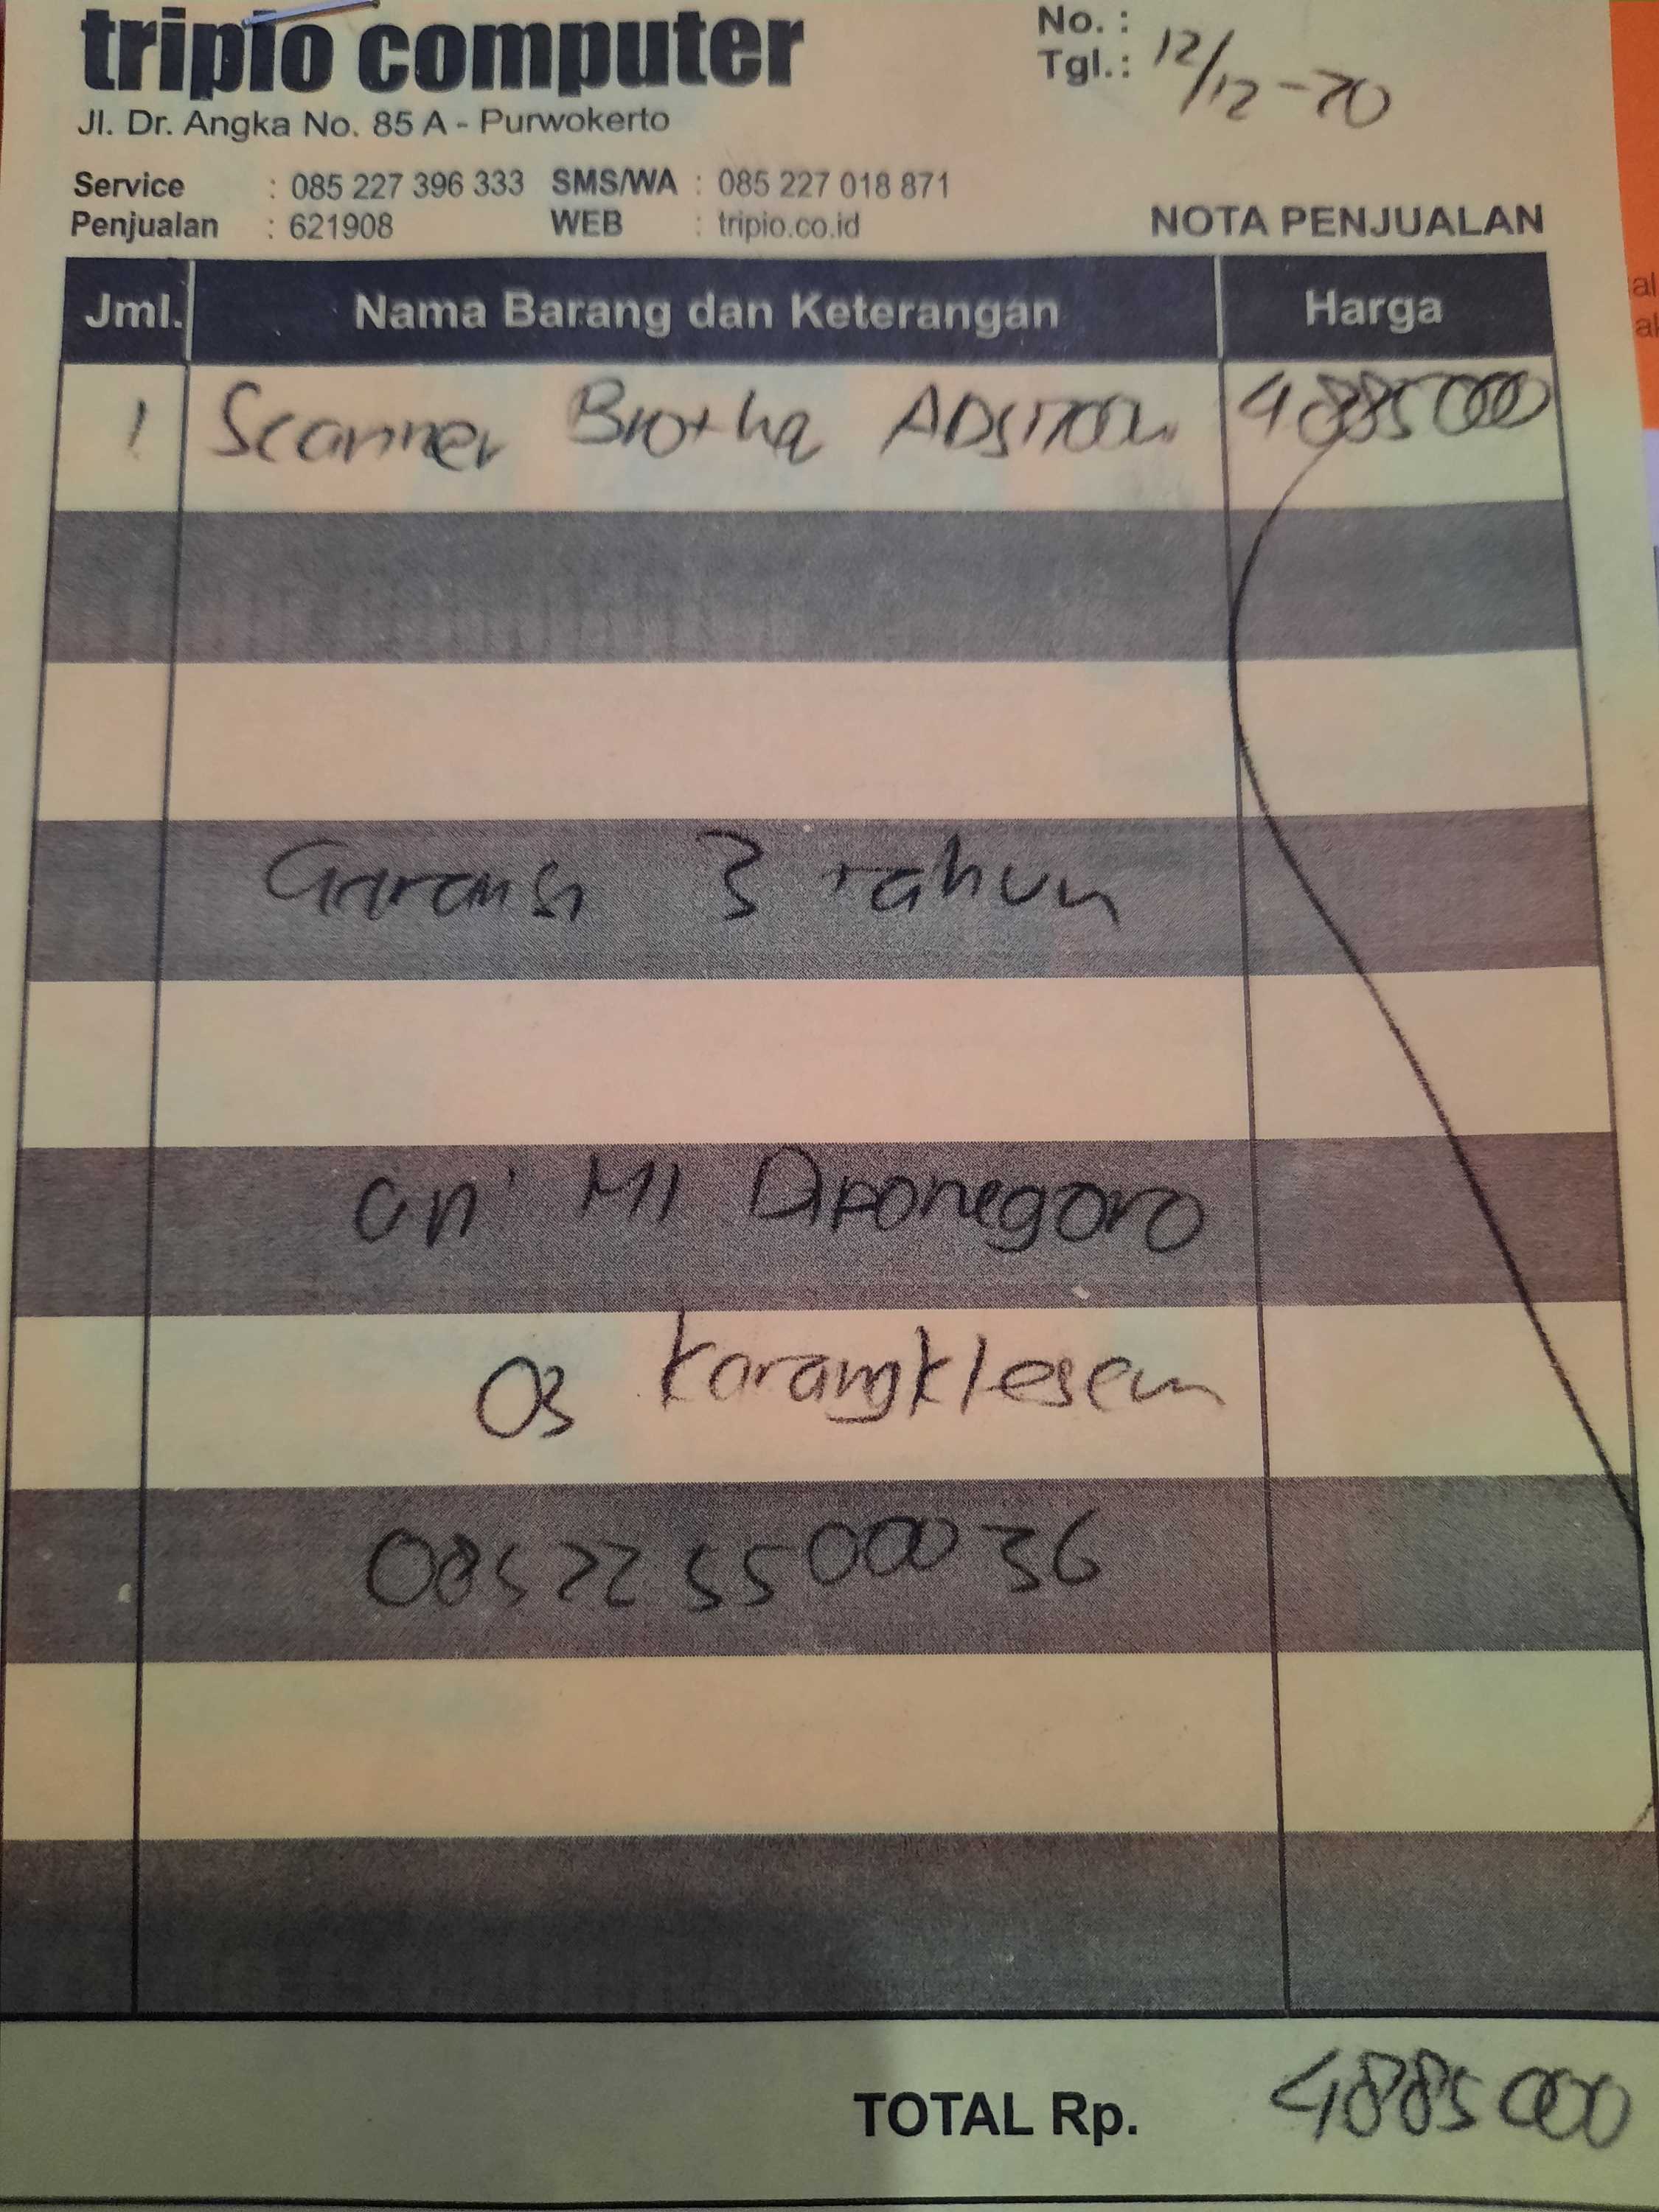 tripio computer
No. :
Tgl.: 12/12-20
Jl. Dr. Angka No. 85 A - Purwokerto
Service : 085 227 396 333 SMS/WA : 085 227 018 871
Penjualan : 621908 WEB : tripio.co.id
NOTA PENJUALAN
Jml. Nama Barang dan Keterangan Harga
1 Scanner Brother 4885000
Garansi 3 tahun
an' MI Diponegoro
03 Karangklesem
085225500036
TOTAL Rp. 4885000